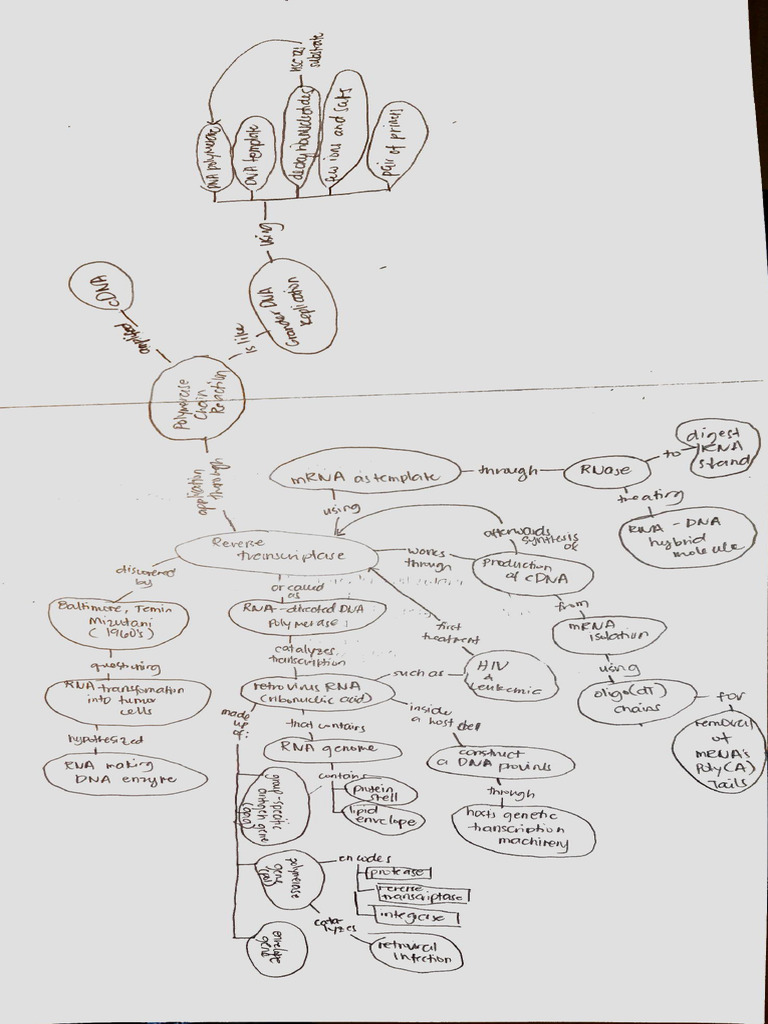 DNA polymerase
DNA template
deoxyribonucleotides
few ions and salts
pair of primers
substrate
using
cDNA
amplified
DNA
replication
is like
Polymerase
Chain
Reaction
application
through
mRNA as template
through
RNase
to
digest
RNA
strand
treating
RNA - DNA
hybrid
molecule
using
Reverse
transcriptase
works
through
afterwards
synthesis
production
of cDNA
from
mRNA
isolation
using
oligo(dT)
chains
for
removal
of
mRNA's
Poly(A)
Tails
discovered
by
Baltimore, Temin
Mizutani
(1960's)
questioning
RNA transformation
into tumor
cells
hypothesized
RNA making
DNA enzyme
or called
as
RNA-directed DNA
polymerase
catalyzes
transcription
retrovirus RNA
(ribonucleic acid)
such as
HIV
&
Leukemic
first
treatment
inside
a host cell
construct
a DNA provirus
through
hosts genetic
transcription
machinery
that contains
RNA genome
contains
protein
shell
lipid
envelope
made
up
of:
group-specific
antigen gene
(gag)
polymerase
gene
(pol)
encodes
protease
reverse
transcriptase
integrase
cata-
lyzes
retroviral
infection
envelope
gene